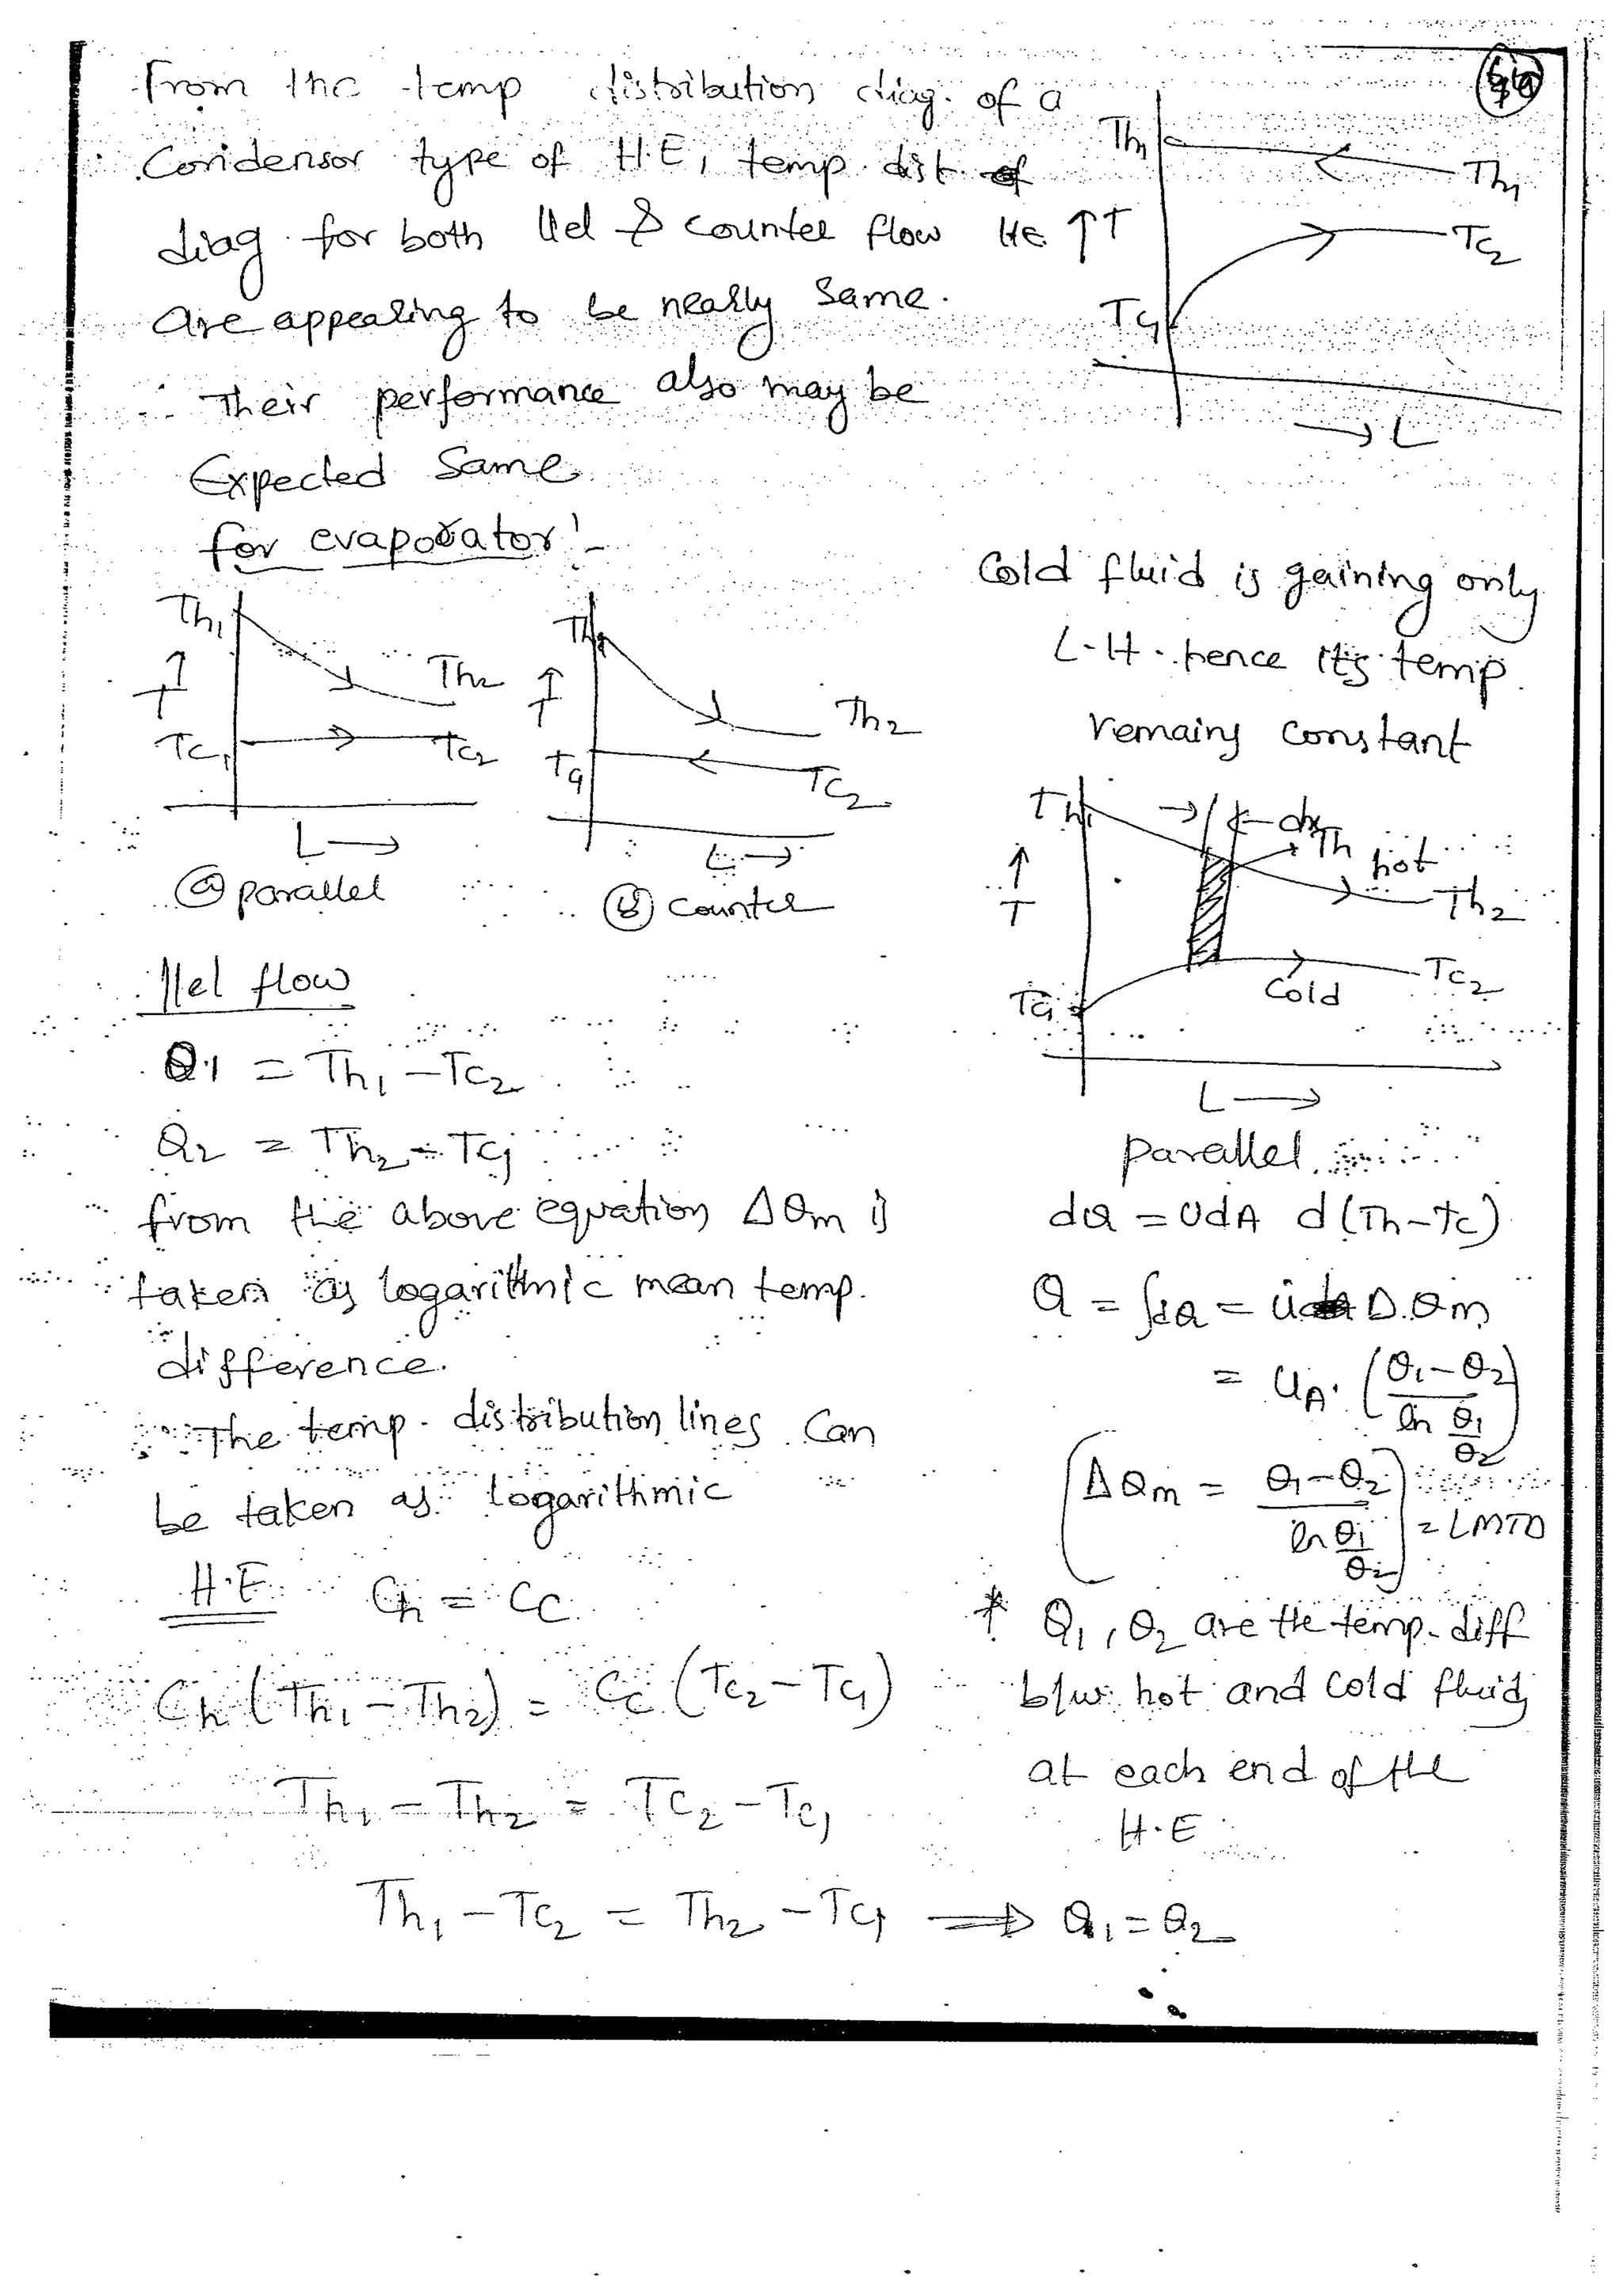 from the temp distribution diag. of a
Condensor type of H.E, temp. dist. of
diag. for both llel & counter flow HE
are appearing to be nearly same.
∴ Their performance also may be
Expected same
Th1
Th1
↑T
Tc2
Tc1
→ L
for evaporator:-
Th1
Th2
↑
T
Tc1
Tc2
L →
(a) parallel
Th1
Th2
↑
T
Tc1
Tc2
L →
(b) counter
Cold fluid is gaining only
L-H. hence its temp.
remains constant
Th1
→ ← dx
Th
hot
Th2
↑
T
Tc2
Cold
Tc1
L →
parallel.
llel flow
θ1 = Th1 - Tc2
θ2 = Th2 - Tc1
from the above equation Δθm is
taken as logarithmic mean temp.
difference.
∴ The temp. distribution lines can
be taken as logarithmic
dQ = UdA d(Th-Tc)
Q = ∫dQ = U Δ.θm
= UA. (θ1-θ2 / ln θ1/θ2)
(Δθm = θ1-θ2 / ln θ1/θ2) = LMTD
* θ1, θ2 are the temp. diff
b/w hot and cold fluids
at each end of the
H.E
H.E Ch = Cc
Ch (Th1 - Th2) = Cc (Tc2 - Tc1)
Th1 - Th2 = Tc2 - Tc1
Th1 - Tc2 = Th2 - Tc1 ⟹ θ1 = θ2